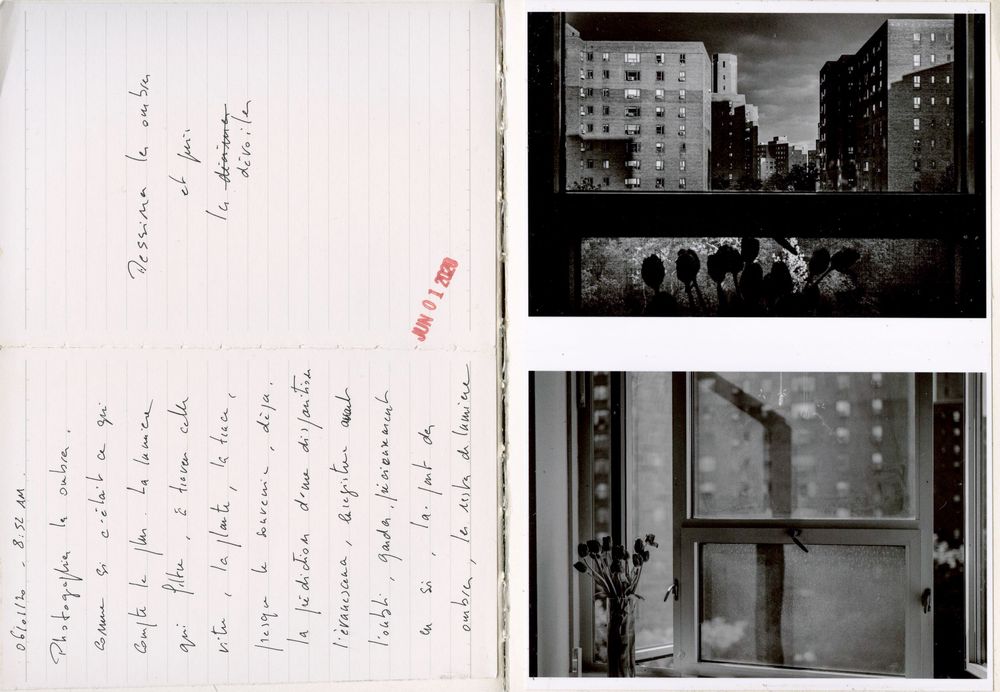 06/01/20 - 8:52 AM
Photographier les ombres.
comme si c'était ce qui
compte le plus. La lumière
qui filtre, à travers cette
vitre, la plante, la trace,
presque le souvenir, déjà.
la prédiction d'une disparition
l'évanescence, enregistrer avant
l'oubli, garder précieusement
en soi, la part des
ombres, les restes de lumière
Dessiner les ombres
et puis
les
dévoiler
JUN 01 2020